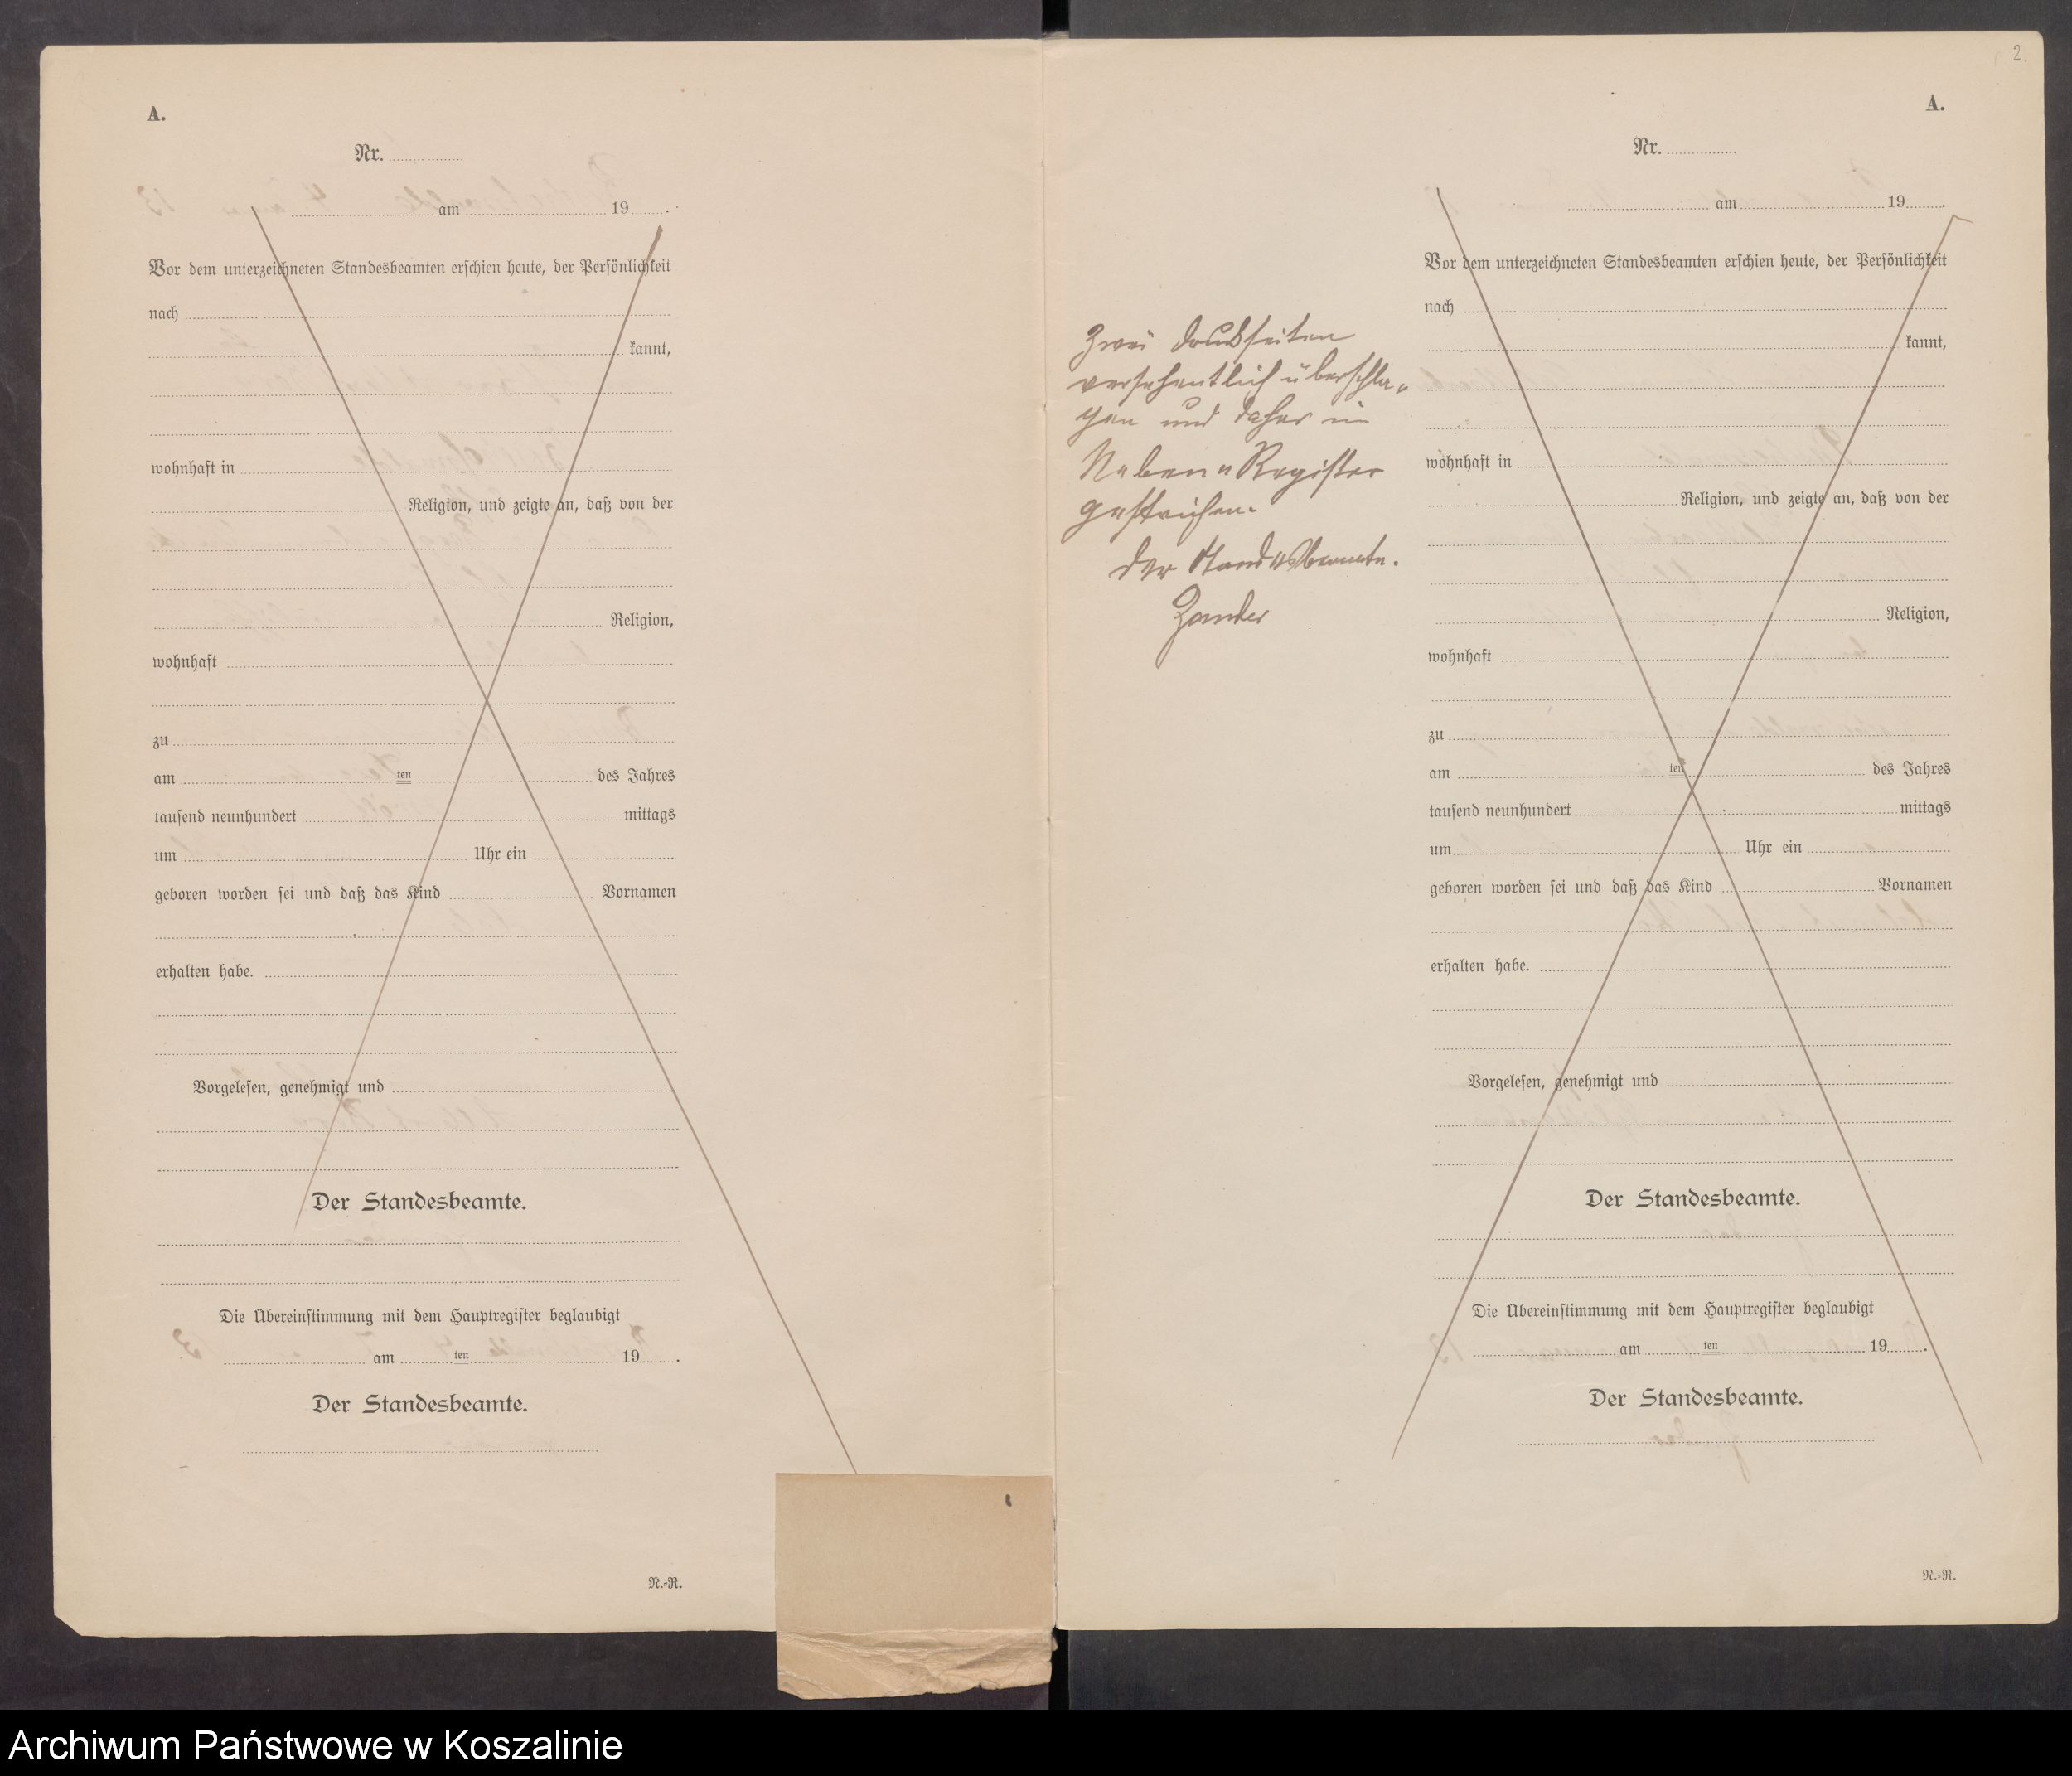 A.
Nr.
am 19 .
Vor dem unterzeichneten Standesbeamten erschien heute, der Persönlichkeit
nach
kannt,
wohnhaft in
Religion, und zeigte an, daß von der
Religion,
wohnhaft
zu
am ten des Jahres
tausend neunhundert mittags
um Uhr ein
geboren worden sei und daß das Kind Vornamen
erhalten habe.
Vorgelesen, genehmigt und
Der Standesbeamte.
Die Übereinstimmung mit dem Hauptregister beglaubigt
am ten 19 .
Der Standesbeamte.
N.-R.
2.
A.
Zwei Druckseiten
versehentlich überschla-
gen und daher im
Neben-Register
gestrichen.
Der Standesbeamte.
Zander
Nr.
am 19 .
Vor dem unterzeichneten Standesbeamten erschien heute, der Persönlichkeit
nach
kannt,
wohnhaft in
Religion, und zeigte an, daß von der
Religion,
wohnhaft
zu
am ten des Jahres
tausend neunhundert mittags
um Uhr ein
geboren worden sei und daß das Kind Vornamen
erhalten habe.
Vorgelesen, genehmigt und
Der Standesbeamte.
Die Übereinstimmung mit dem Hauptregister beglaubigt
am ten 19 .
Der Standesbeamte.
N.-R.
Archiwum Państwowe w Koszalinie